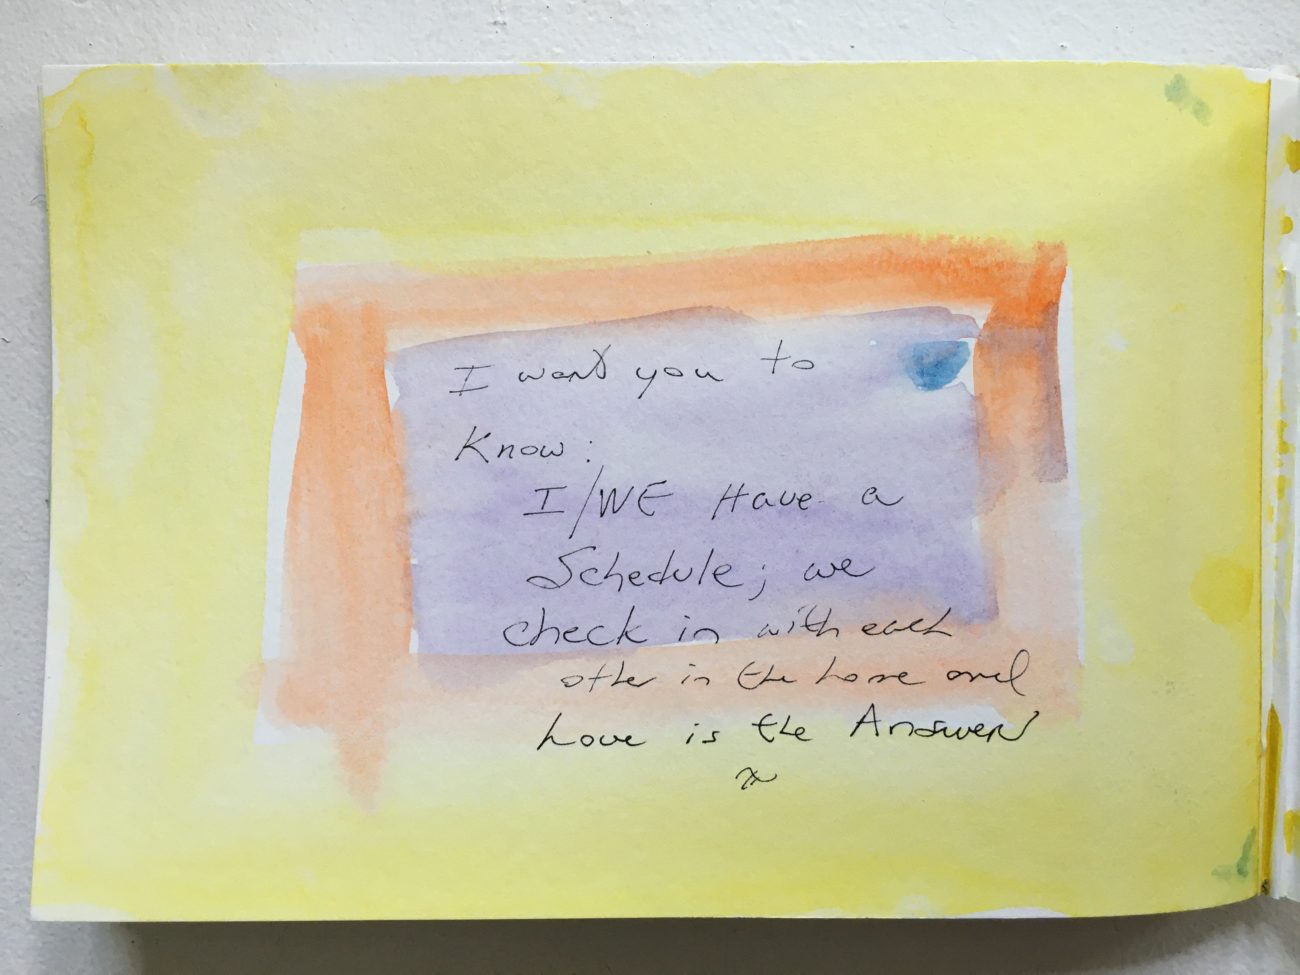 I want you to
Know:
I/WE Have a
Schedule; we
check in with each
other in the home and
Love is the Answer
x